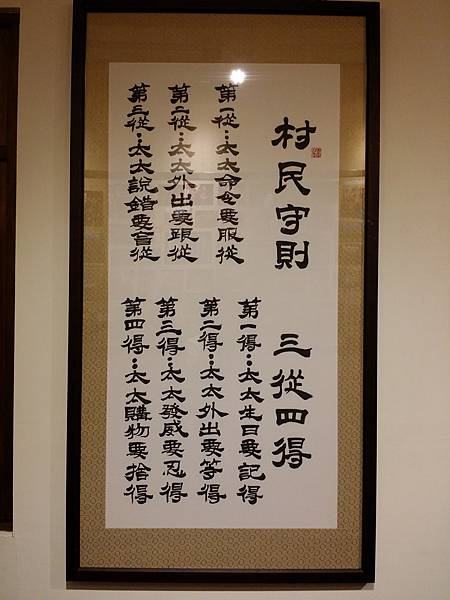 村民守則 三從四得
第一從：太太命令要服從
第二從：太太外出要跟從
第三從：太太說錯要盲從
第一得：太太生日要記得
第二得：太太外出要等得
第三得：太太發威要忍得
第四得：太太購物要捨得